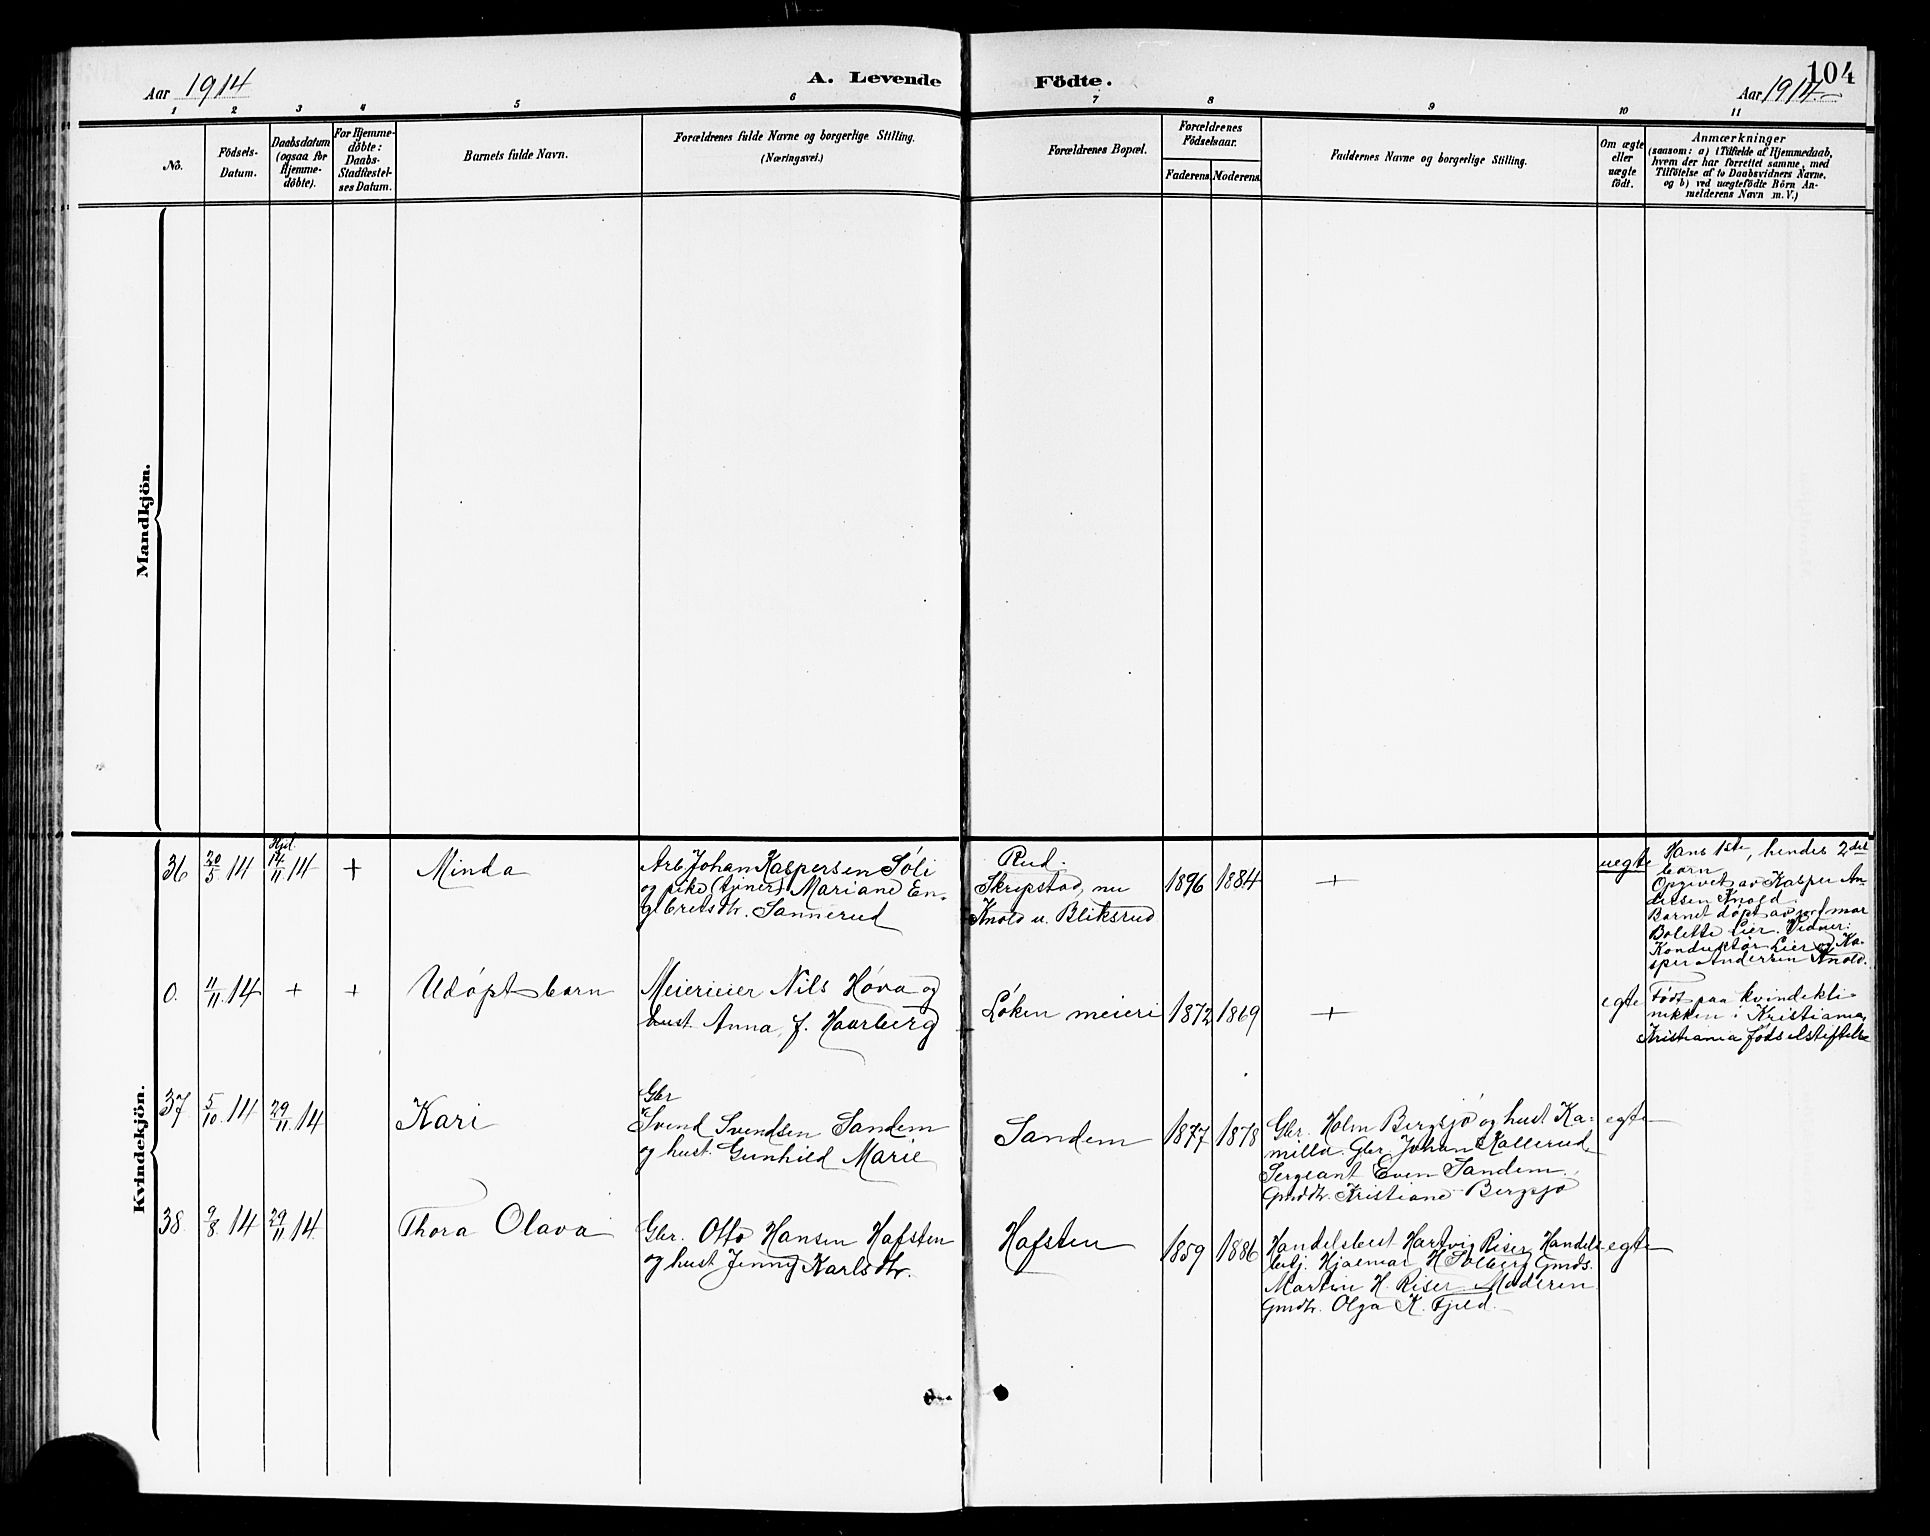 104
Aar 1914
A. Levende
Födte.
Aar 1914
1 2 3 4 5 6 7 8 9 10 11
No.
Födsels-
Datum.
Daabsdatum
(ogsaa for
Hjemme-
döbte).
For Hjemme-
döbte:
Daabs-
Stadfæstel-
ses Datum.
Barnets fulde Navn.
Forældrenes fulde Navne og borgerlige Stilling.
(Næringsvei.)
Forældrenes Bopæl.
Forældrenes
Födselsaar.
Faderens. Moderens.
Faddernes Navne og borgerlige Stilling.
Om ægte
eller
uægte
födt.
Anmærkninger
(saasom: a) i Tilfælde af Hjemmedaab,
hvem der har forrettet samme, med
Tilföielse af to Daabsvidners Navne,
og b) ved uægtefödte Börn An-
melderens Navn m. V.)
Mandkjön.
Kvindekjön.
36 20/5 14 Hjd. 14/11 14 + Minda
Arb. Johan Kaspersen Söli
og pike (tjener) Mariane En-
gebretsdtr. Sannerud
Rud.
Skrepstad, nu
Knold u. Bliksrud
1896 1884 + uegte
Hans 1ste, hendes 2det
barn
Opgivet av Kasper An-
dersen Knold.
Barnet döpt av jordmor
Bolette Lier. Vidner:
Konduktör Lier og Ka-
sper Andersen Knold.
0. 11/11 14 + + Udöpt barn
Meierieier Nils Höva og
hust. Anna, f. Haarberg
Löken meieri 1872 1869 + egte
Födt paa kvindekli-
nikken i Kristiania,
Kristiania födselsstiftelse
37 5/10 14 29/11 14 Kari
Gbr
Svend Svendsen Sandem
og hust. Gunhild Marie
Sandem 1877 1878
Gbr. Holm Bergsjö og hust Ka-
milla. Gbr Johan Kallerud,
Sergeant Even Sandem.
Gmddtr. Kristiane Bergsjö
egte
38. 9/8 14 29/11 14 Thora Olava
Gbr. Otto Hansen Hafsten
og hust Jenny Karlsdtr.
Hafsten 1859 1886
Handelsbest Hartvig Riser, Handels-
betj. Hjalmar H Solberg Gmds.
Martin H. Riser. Moderen
Gmdtr. Olga K. Fjeld.
egte